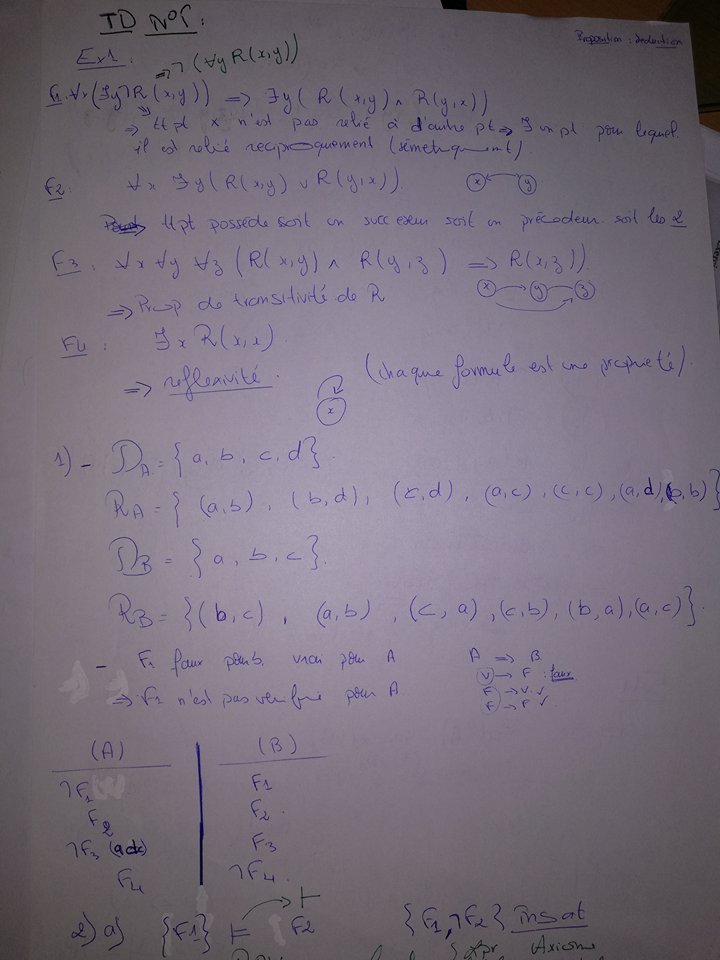 TD N°1:
Proposition : deduction
Ex1 :
=> ¬(∀y R(x,y))
F1. ∀x(∃y ¬R(x,y)) => ∃y( R(x,y) ∧ R(y,x))
=> tt pt x n'est pas relié à d'autre pt => ∃ un pt pour lequel
il est relié reciproquement (simetriquement).
F2: ∀x ∃y( R(x,y) ∨ R(y,x)). x y
=> tt pt possède soit un successeur soit un précedeur soit les 2
F3: ∀x ∀y ∀z ( R(x,y) ∧ R(y,z) => R(x,z)).
=> Prop de transitivité de R x y z
F4: ∃x R(x,x).
=> reflexivité. x (chaque formule est une proprieté).
1) - DA = { a, b, c, d }.
RA = { (a,b), (b,d), (c,d), (a,c), (c,c), (a,d), (b,b) }
DB = { a, b, c }.
RB = { (b,c), (a,b), (c,a), (c,b), (b,a), (a,c) }.
- F1 faux pour b. vrai pour A A => B
V -> F : faux
=> F1 n'est pas verifié pour A. F -> V. ✓
F -> F ✓
(A) (B)
¬F1 F1
F2 F2.
¬F3 (adc) F3
F4 ¬F4.
⊢
2) a) {F1} ⊨ F2 {F1, ¬F2} insat
Axiome